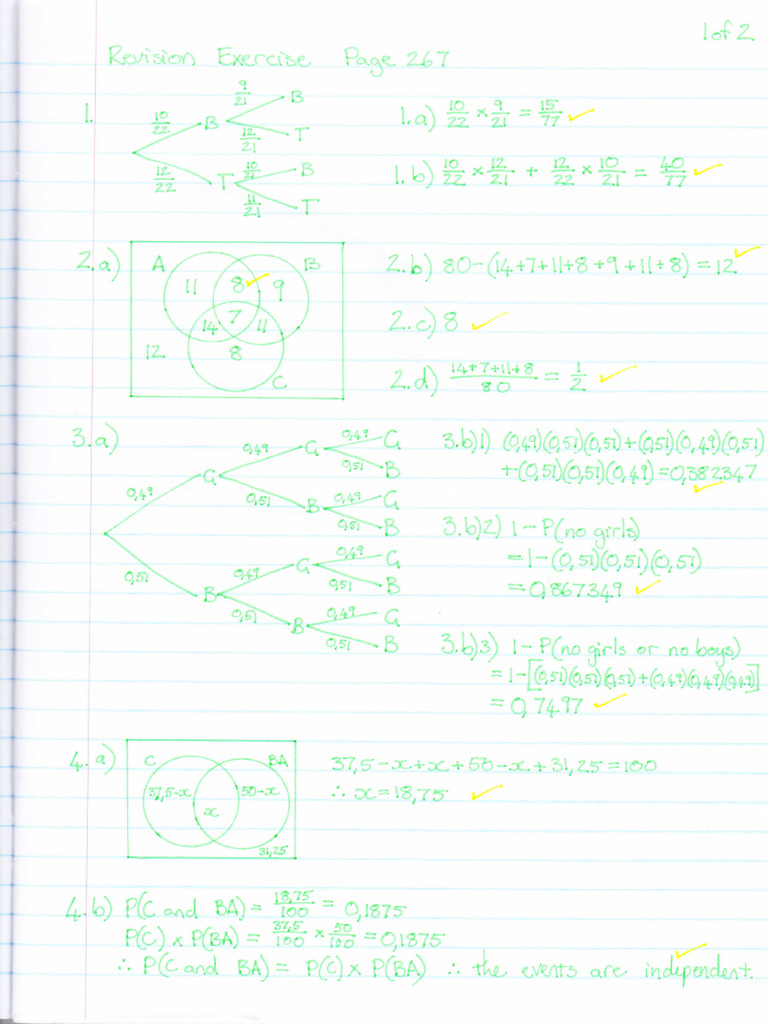 1 of 2
Revision Exercise Page 267
1.
10/22 B 9/21 B
12/21 T
12/22 T 10/21 B
11/21 T
1.a) 10/22 × 9/21 = 15/77 ✓
1.b) 10/22 × 12/21 + 12/22 × 10/21 = 40/77 ✓
2.a)
A B
11 8 ✓ 9
14 7 11
12 8
C
2.b) 80-(14+7+11+8+9+11+8) = 12 ✓
2.c) 8 ✓
2.d) (14+7+11+8)/80 = 1/2 ✓
3.a)
0,49 G 0,49 G 0,49 G
0,51 B
0,51 B 0,49 G
0,51 B
0,51 B 0,49 G 0,49 G
0,51 B
0,51 B 0,49 G
0,51 B
3.b)1) (0,49)(0,51)(0,51)+(0,51)(0,49)(0,51)
+(0,51)(0,51)(0,49) = 0,382347 ✓
3.b)2) 1-P(no girls)
=1-(0,51)(0,51)(0,51)
=0,867349 ✓
3.b)3) 1-P(no girls or no boys)
=1-[(0,51)(0,51)(0,51)+(0,49)(0,49)(0,49)]
=0,7497 ✓
4.a)
C BA
37,5-x x 50-x
31,25
37,5-x+x+50-x+31,25=100
∴ x=18,75 ✓
4.b) P(C and BA) = 18,75/100 = 0,1875
P(C) × P(BA) = 37,5/100 × 50/100 = 0,1875
∴ P(C and BA) = P(C) × P(BA) ∴ the events are independent. ✓